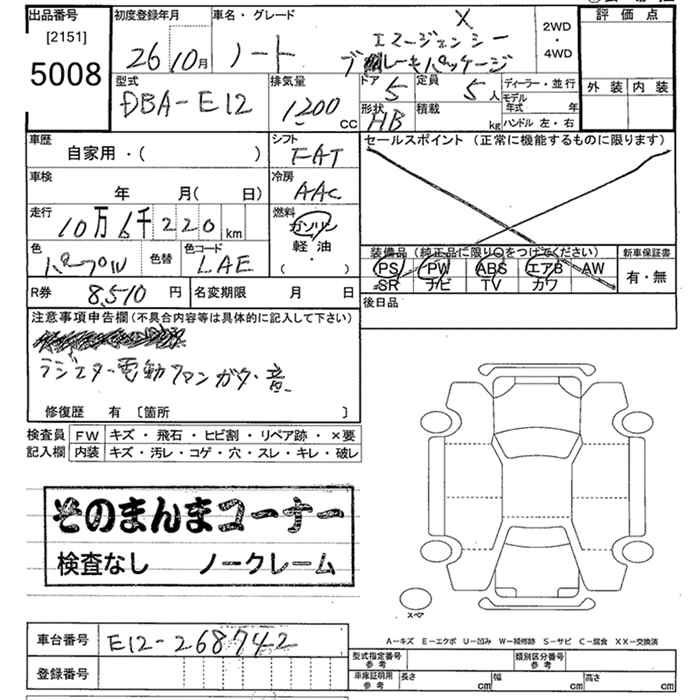 出品番号 初度登録年月 車名・グレード 評価点
[2151] 26 10月 ノート X エマージェンシー ブレーキパッケージ 2WD・4WD
5008
型式 排気量 ドア 定員 ディーラー・並行 外装 内装
DBA-E12 1200 CC 5 5人 モデル年式 年
形状 HB 積載 kg ハンドル 左・右
車歴 シフト セールスポイント (正常に機能するものに限ります)
自家用・( ) FAT
車検 冷房
年 月( 日) AAC
走行 燃料
10万6千220km ガソリン
軽油
・( )
色 色替 色コード 装備品 (純正品に限り○をつけてください) 新車保証書
パープル LAE PS PW ABS エアB AW 有・無
SR ナビ TV カワ
R券 8,510円 名変期限 月 日 後日品
注意事項申告欄(不具合内容等は具体的に記入して下さい)
ラジエター電動ファンガタ・音
修復歴 有 [箇所 ]
検査員 FW キズ・飛石・ヒビ割・リペア跡・×要
記入欄 内装 キズ・汚レ・コゲ・穴・スレ・キレ・破レ
そのまんまコーナー
検査なし ノークレーム
スペア
A―キズ E―エクボ U―凹み W―補修跡 S―サビ C―腐食 XX―交換済
車台番号 E12-268742
登録番号
型式指定番号 参考 類別区分番号 参考
車庫証明用 参考 長さ cm 幅 cm 高さ cm